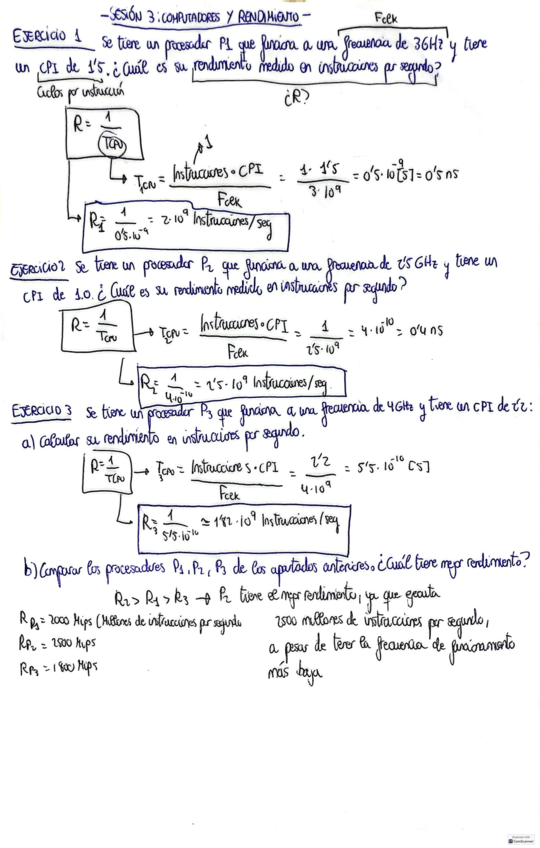 - SESIÓN 3: COMPUTADORES Y RENDIMIENTO -
Fclk
EJERCICIO 1 Se tiene un procesador P1 que funciona a una frecuencia de 3GHz y tiene
un CPI de 1'5. ¿Cuál es su rendimiento medido en instrucciones por segundo?
Ciclos por instrucción
¿R?
R = 1 / TCPU
1
T1CPU = Instrucciones · CPI / Fclk = 1 · 1'5 / 3·10^9 = 0'5·10^-9 [s] = 0'5 ns
R1 = 1 / 0'5·10^-9 = 2·10^9 Instrucciones/seg
EJERCICIO 2 Se tiene un procesador P2 que funciona a una frecuencia de 2'5 GHz y tiene un
CPI de 1.0. ¿Cuál es su rendimiento medido en instrucciones por segundo?
R = 1 / TCPU → T2CPU = Instrucciones · CPI / Fclk = 1 / 2'5·10^9 = 4·10^-10 = 0'4 ns
R2 = 1 / 4·10^-10 = 2'5·10^9 Instrucciones/seg
EJERCICIO 3 Se tiene un procesador P3 que funciona a una frecuencia de 4GHz y tiene un CPI de 2'2:
a) Calcular su rendimiento en instrucciones por segundo.
R = 1 / TCPU → T3CPU = Instrucciones · CPI / Fclk = 2'2 / 4·10^9 = 5'5·10^-10 [s]
R3 = 1 / 5'5·10^-10 ≃ 1'82·10^9 Instrucciones/seg
b) Comparar los procesadores P1, P2, P3 de los apartados anteriores. ¿Cuál tiene mejor rendimiento?
R2 > R1 > R3 → P2 tiene el mejor rendimiento, ya que ejecuta
RP1 = 2000 Mips (Millones de instrucciones por segundo
2500 millones de instrucciones por segundo,
RP2 = 2500 Mips
a pesar de tener la frecuencia de funcionamiento
RP3 = 1800 Mips
más baja
CamScanner